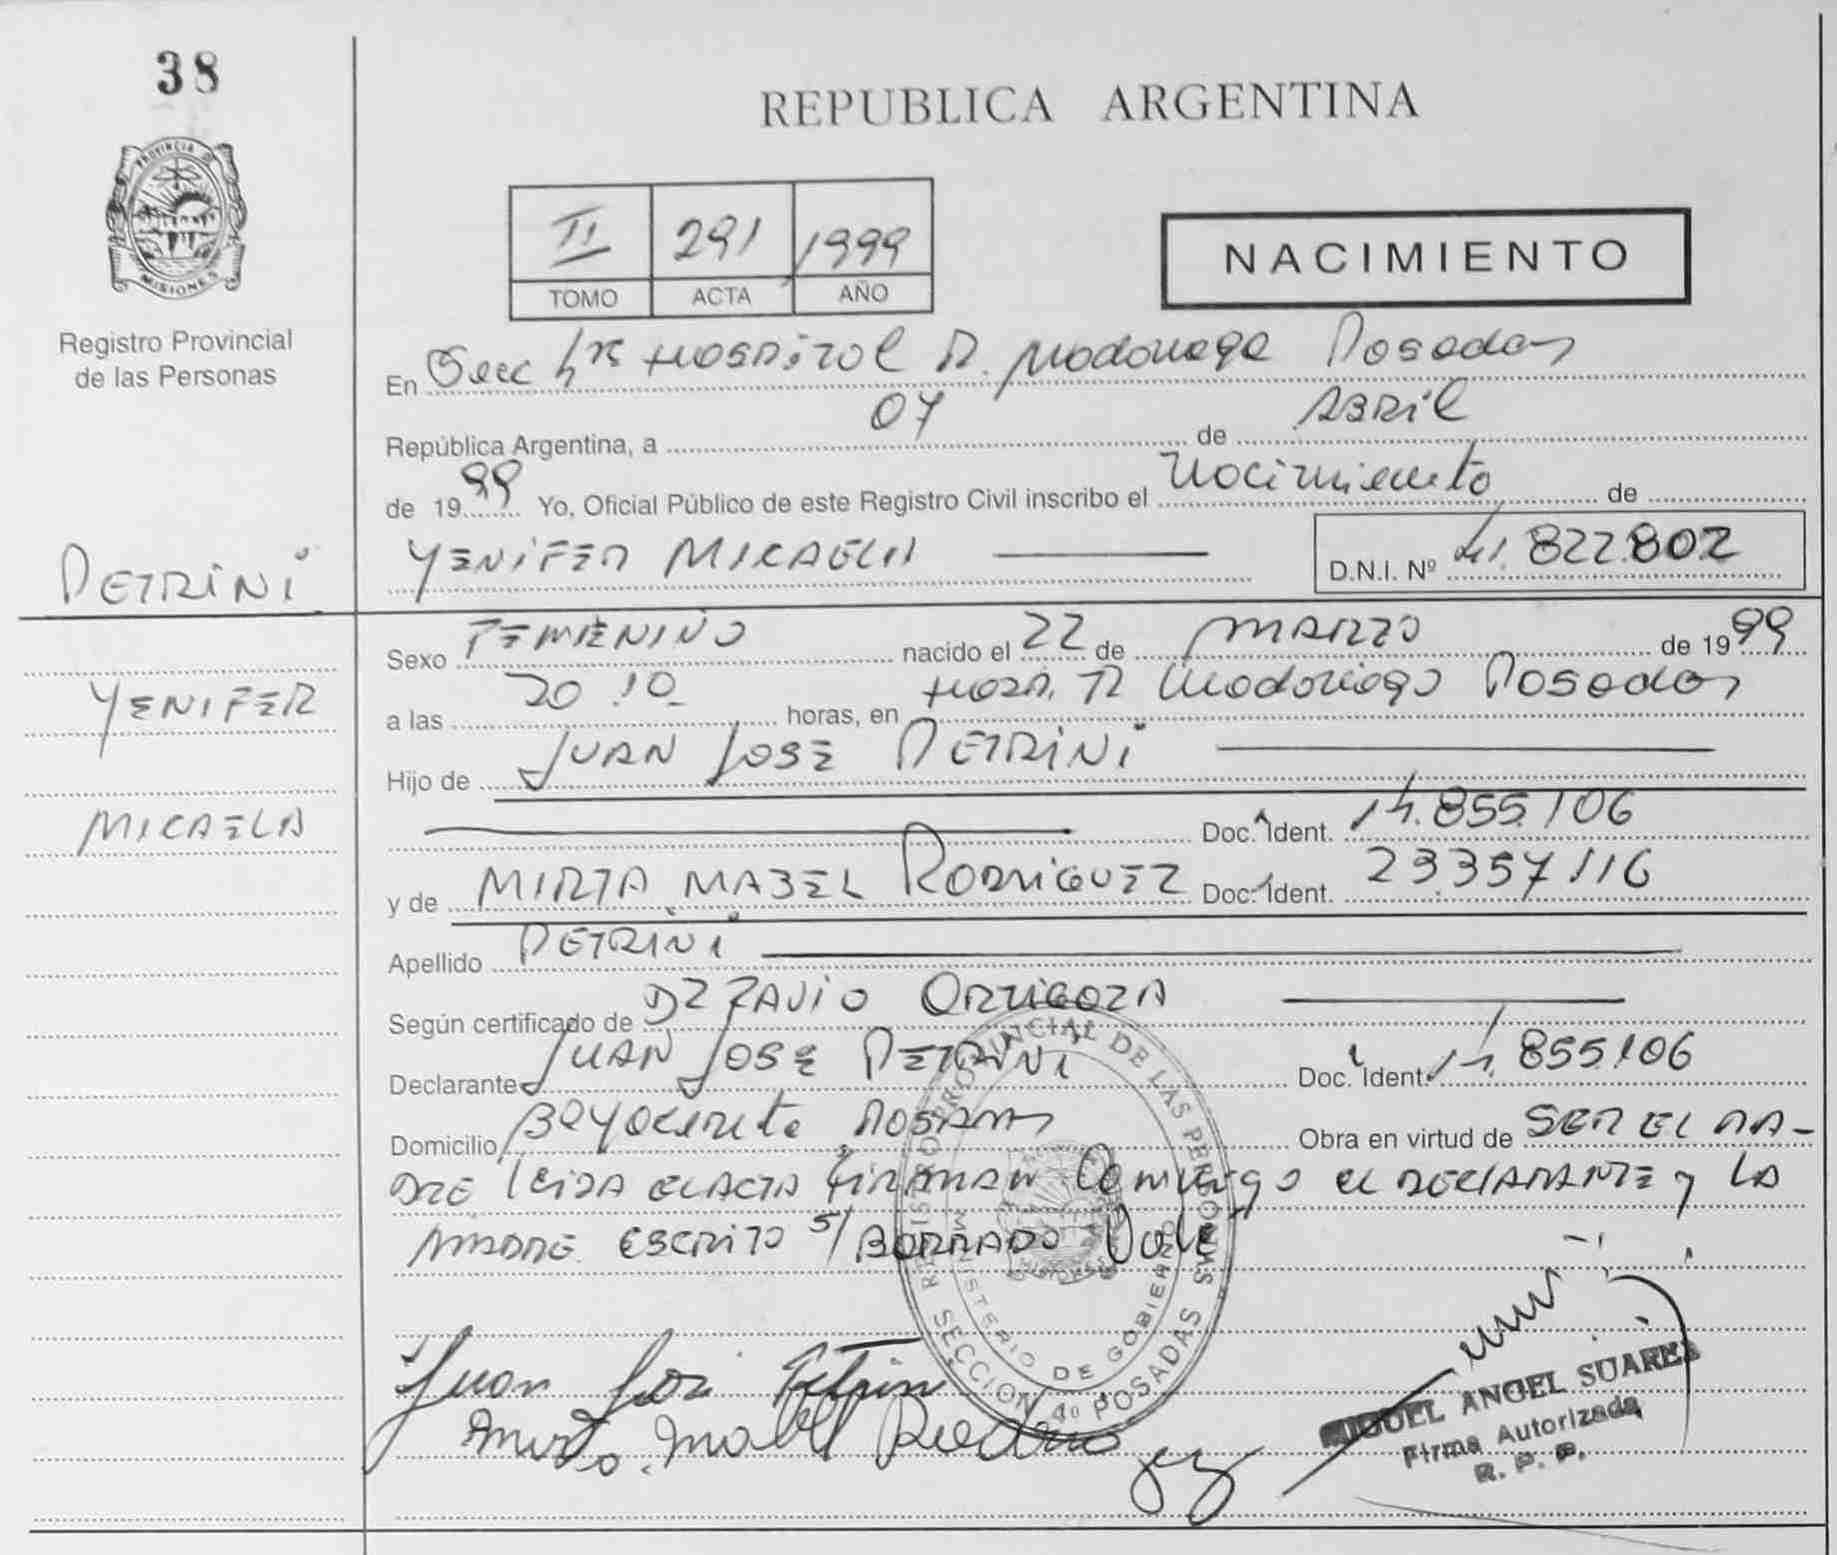 38
REPUBLICA ARGENTINA
PROVINCIA DE
MISIONES
Registro Provincial
de las Personas
II 291 1999
TOMO ACTA AÑO
NACIMIENTO
En Secc Hospital R. Madariaga Posadas
República Argentina, a 07 de ABRIL
de 1999 Yo, Oficial Público de este Registro Civil inscribo el Nacimiento de
PETRINI
YENIFER MICAELA D.N.I. Nº 41.822.802
Sexo FEMENINO nacido el 22 de MARZO de 1999
YENIFER
a las 20.10 horas, en Hosp. R Madariaga Posadas
Hijo de JUAN JOSE PETRINI
MICAELA
Doc. Ident. 14.855.106
y de MIRTA MABEL RODRIGUEZ Doc. Ident. 23.357.116
Apellido PETRINI
Según certificado de
Declarante JUAN JOSE PETRINI Doc. Ident. 14.855.106
Domicilio Posadas Obra en virtud de SER EL PA-
DRE leida el acta firman conmigo el declarante y LA
MADRE ESCRITO S/ BORRADO Vale
REGISTRO PROVINCIAL DE LAS PERSONAS
MINISTERIO DE GOBIERNO
SECCION 4º POSADAS
Juan José Petrini
Mirta Mabel
MIGUEL ANGEL SUAREZ
Firma Autorizada
R. P. P.